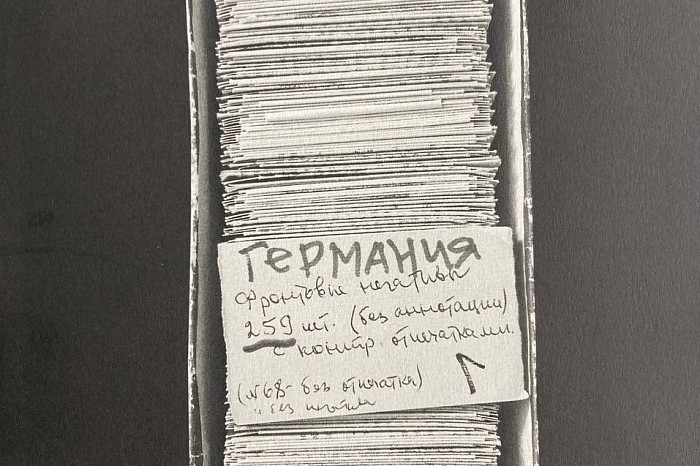 ГЕРМАНИЯ
фронтовые негативы
259 шт. (без аннотации)
с контр. отпечатками.
(№68 - без отпечатка)
без